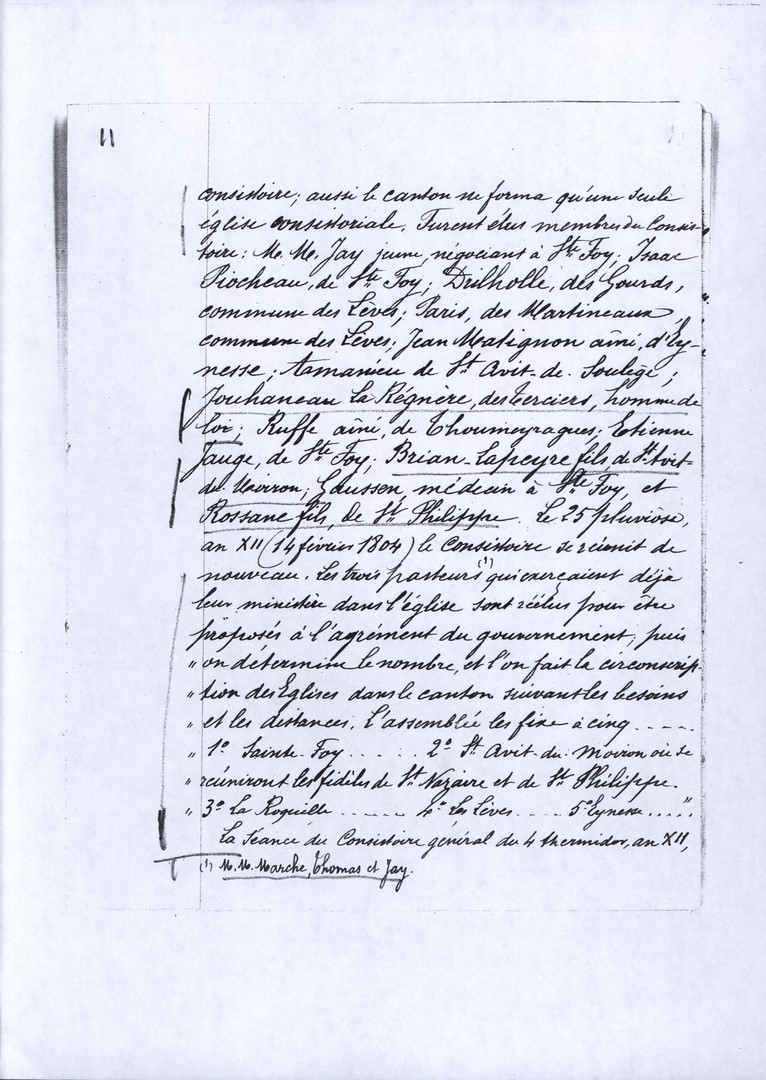 11
consistoire; aussi le canton ne forma qu'une seule
église consistoriale. Furent élus membres du Consis-
toire: M. M. Jay jeune, négociant à Ste Foy; Isaac
Piocheau, de Ste Foy; Drilholle, des Gourds,
commune des Lèves; Paris, des Martineaux,
commune des Lèves; Jean Matignon aîné, d'Ey-
nesse; Amanieu de St Avit-de-Soulège;
Jouhaneau La Régnère, des Merciers, homme de
loi; Ruffe aîné, de Thoumeyragues; Etienne
Jauge, de Ste Foy; Brian-Lapeyre fils, de St Avit-
du-Moiron; Gaussen, médecin à Ste Foy, et
Rossane fils, de St Philippe. Le 25 pluviôse,
an XII (14 février 1804) le Consistoire se réunit de
nouveau. Les trois pasteurs (1) qui exerçaient déjà
leur ministère dans l'église sont réélus pour être
proposés à l'agrément du gouvernement; puis
" on détermine le nombre, et l'on fait la circonscrip-
" tion des Eglises dans le canton suivant les besoins
" et les distances. L'assemblée les fixe à cinq .....
" 1º Sainte-Foy ..... 2º St Avit-du-Moiron où se
" réuniront les fidèles de St Nazaire et de St Philippe.
" 3º La Roquille ..... 4º Les Lèves .... 5º Eynesse ....."
La Séance du Consistoire général du 4 thermidor, an XII,
(1) M. M. Marche, Thomas et Jay.